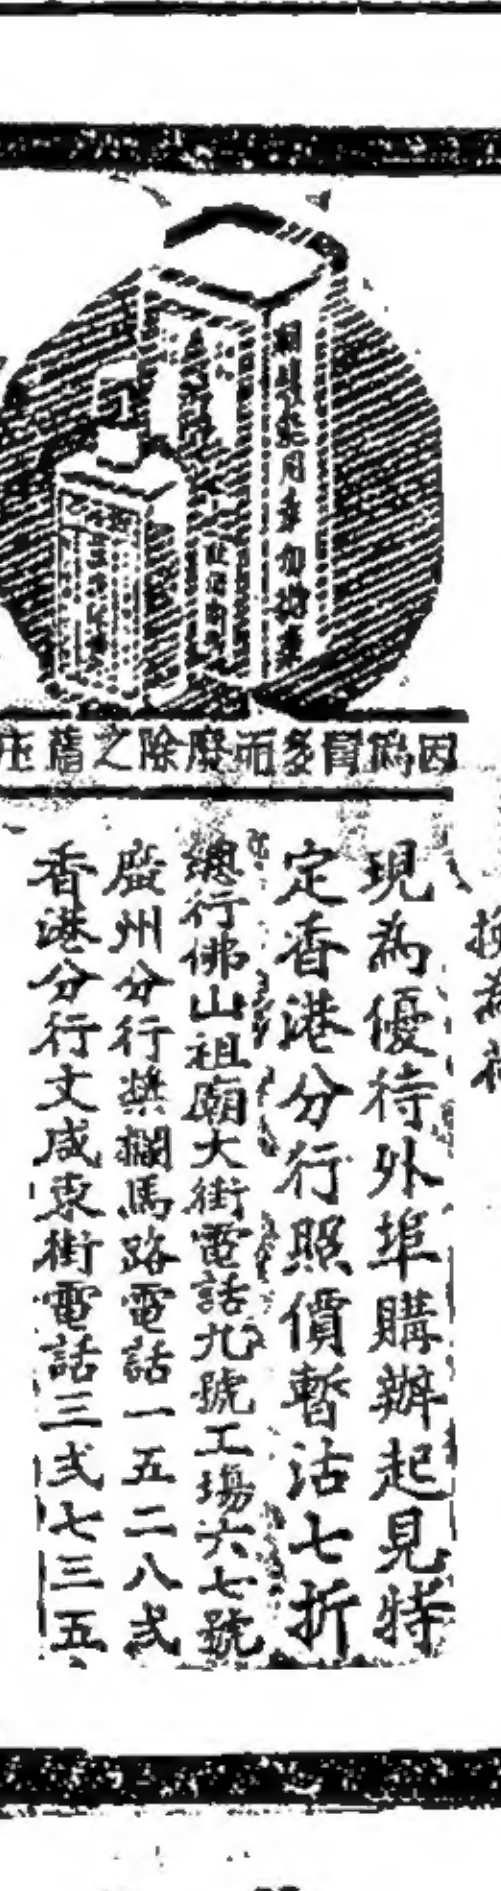 因偽冒多而廢除之舊庄
現為優待外埠購辦起見特
定香港分行照價暫沽七折
總行佛山祖廟大街電話九號工場六七號
廣州分行槳欄馬路電話一五二八弍
香港分行文咸東街電話三弍七三五